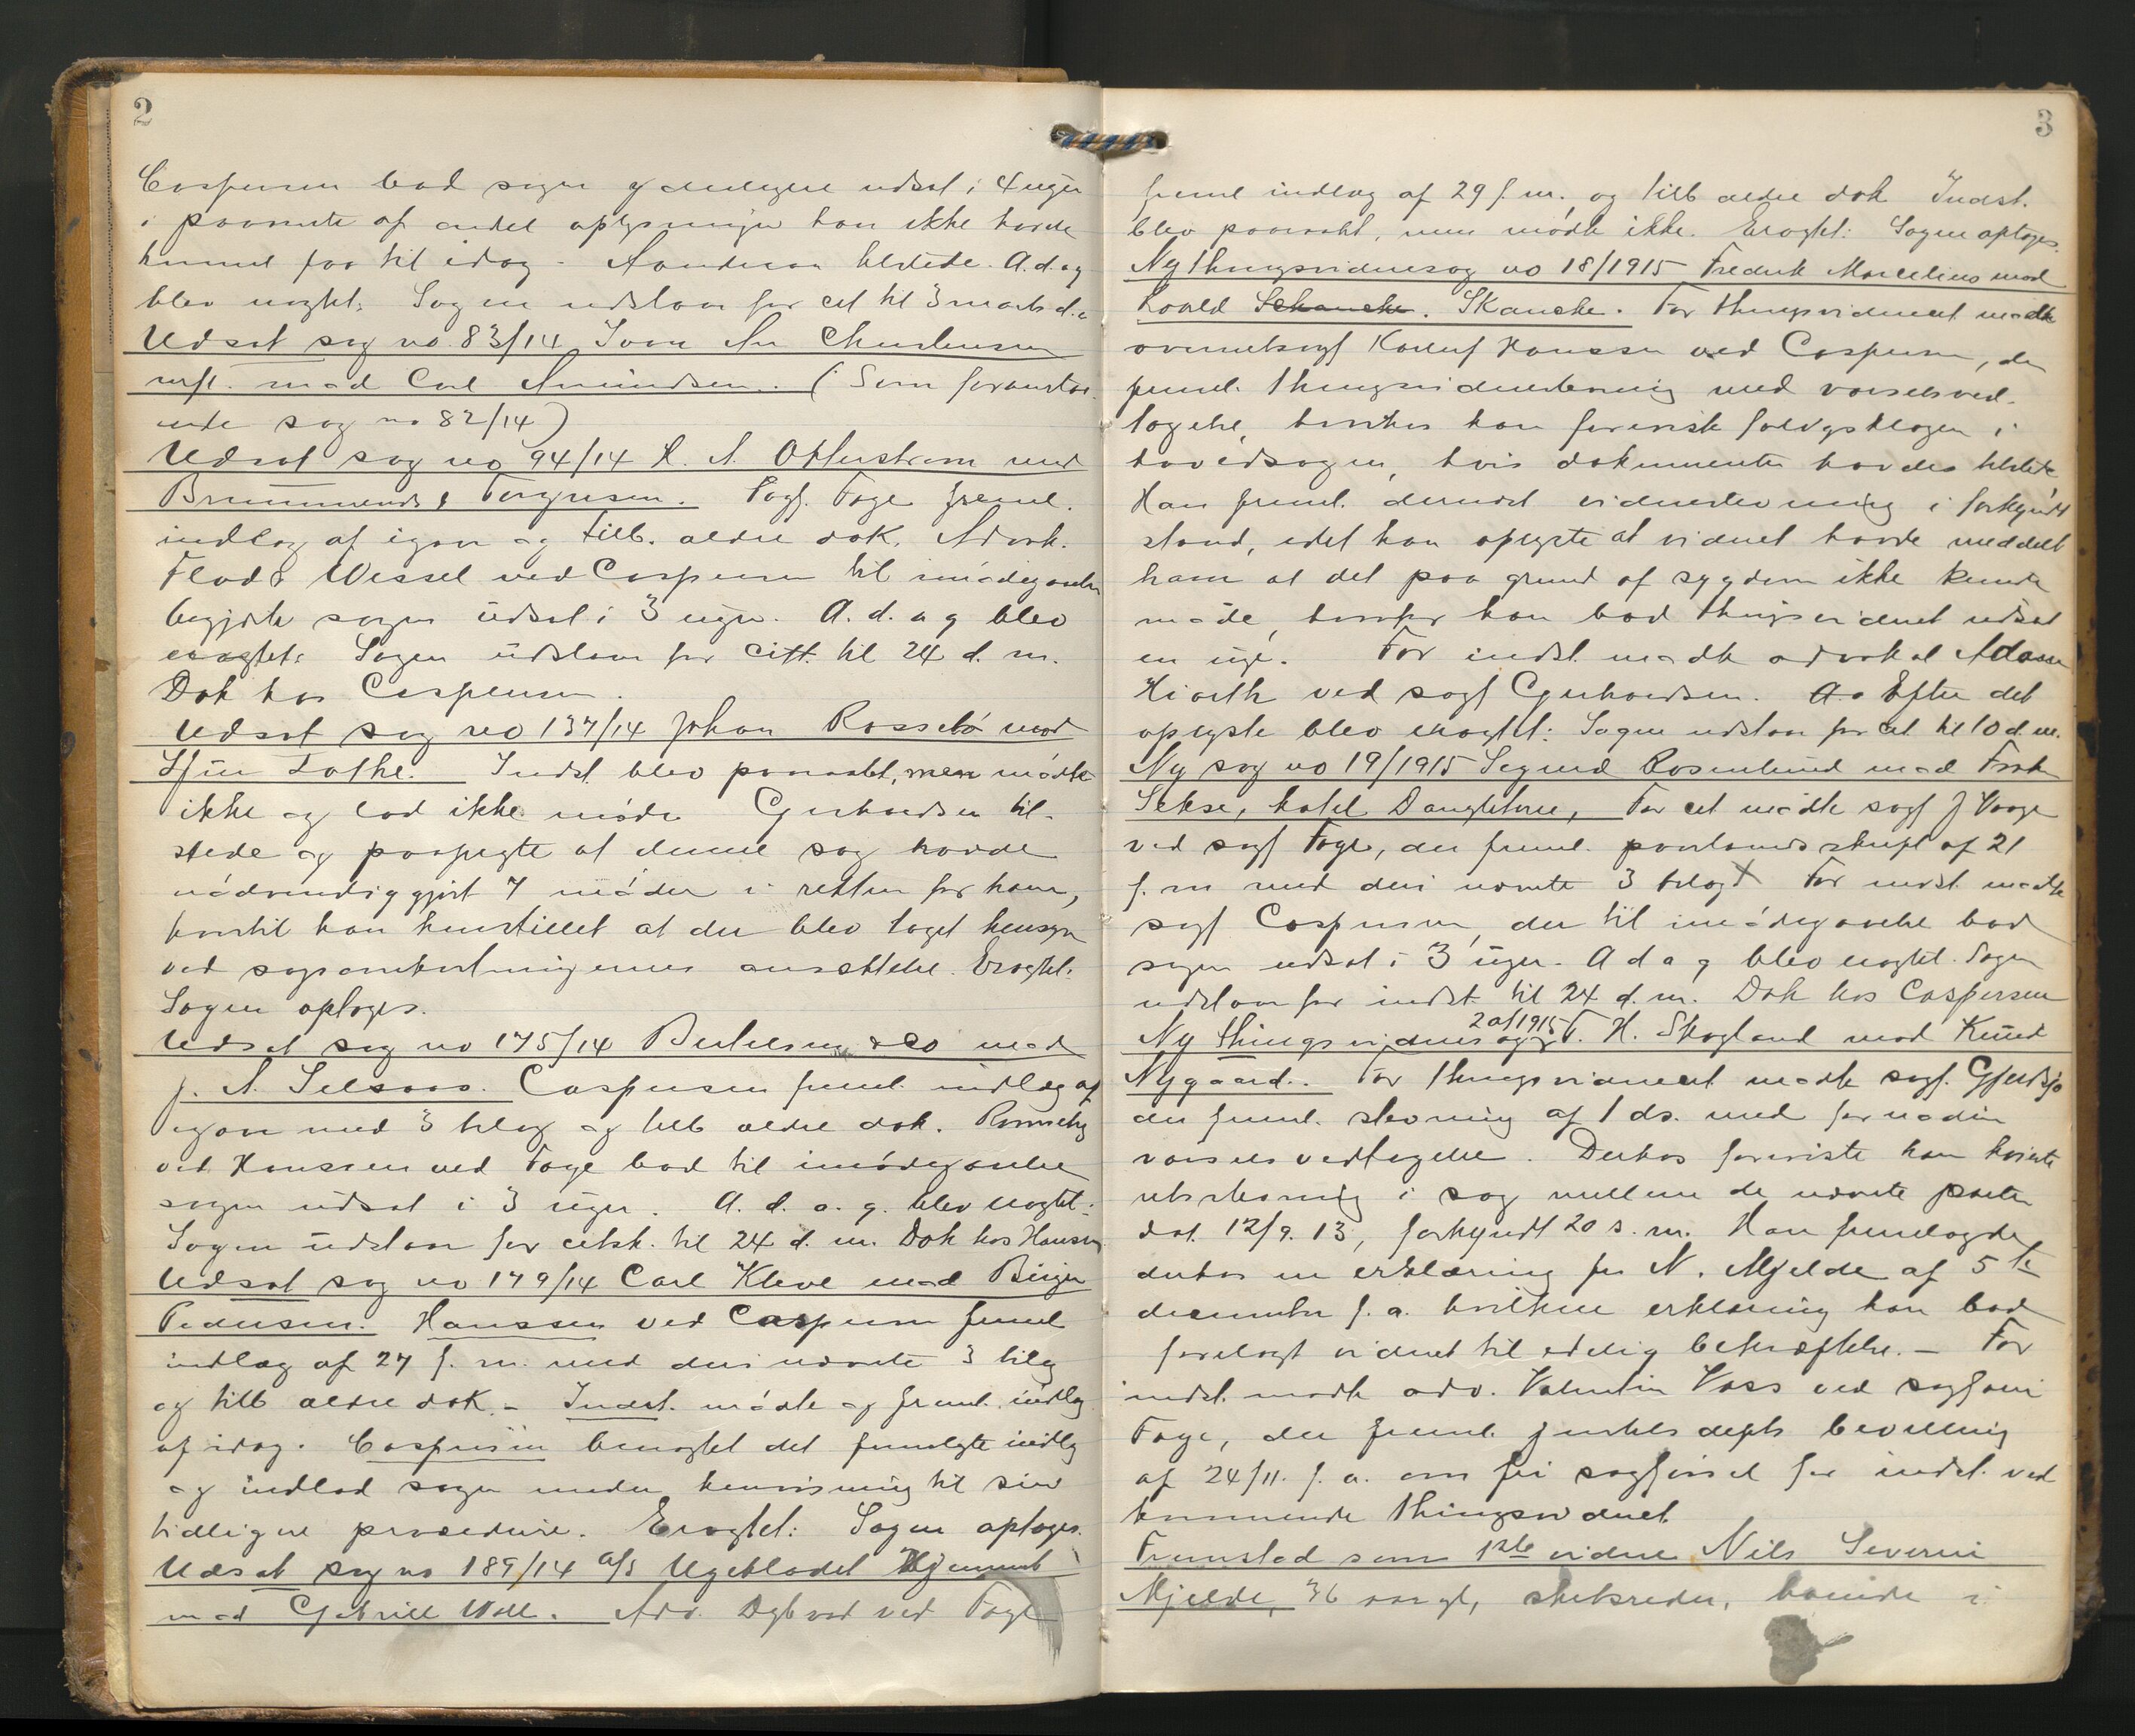 2
Caspersen bad sagen yderligere udsat i 4 uger
i paavente af endel oplysninger han ikke havde
kunnet faa til idag. tilstede. A. d. a g
blev eragtet: Sagen udstaar for cit til 3 marts d. a
Udsat sag no 83/14 Christensen
mfl. mod Carl Amundsen. (Som foranstaa
ende sag no 82/14)
Udsat sag no 94/14 H. A. Otterstrøm mod
Sagf. Foge freml.
indlæg af igaar og tilb. ældre dok. Advok.
Wessel ved Caspersen til imødegaaelse
begjærte sagen udsat i 3 uger. A. d. a g blev
eragtet: Sagen udstaar for citt. til 24 d. m.
Dok hos Caspersen.
Udsat sag no 137/14 Johan mod
Lothe. Indst. blev paaraabt, men mødte
ikke og lod ikke møde Gerhardsen til-
stede og paapegte at denne sag havde
nødvendiggjort 7 møder i retten for ham,
hvortil han henstillet at der blev taget hensyn
ved sagsomkostningernes ansættelse. Eragtet:
Sagen optages.
Udsat sag no 175/14 & Co mod
J. A. Selsaas. Caspersen freml. indlæg af
igaar med 3 bilag og tilb ældre dok.
ved Hanssen ved Foge bad til imødegaaelse
sagen udsat i 3 uger. A. d. a. g. blev eragtet:
Sagen udstaar for citsk. til 24 d. m. Dok hos Hanssen
Udsat sag no 179/14 Carl Kleve mod Birger
Pedersen. Hanssen ved Caspersen freml
indlæg af 27 f. m. med deri nævnte 3 bilag
og tilb ældre dok. – Indst. mødte og freml. indlæg
af idag. Caspersen benegtet det fremlagte indlæg
og indlod sagen under henvisning til sin
tidligere procedure. Eragtet: Sagen optages.
Udsat sag no 189/14 A/S Ugebladet Hjemmet
mod Gabriell Woll. Adv. ved Foge
3
freml indlæg af 29 f. m., og tilb ældre dok Indst.
blev paaraabt, men mødte ikke. Eragtet: Sagen optages.
Ny thingsvidnesag no 18/1915 Fredrik Marcelius mod
Schanche. Skanche. For thingsvidnecit mødte
overretssagf Hanssen ved Caspersen, der
freml. thingsvidnestevning med varselsved-
tagelse, hvorhos han foreviste forligsklagen i
hovedsagen, hvis dokumenter havdes tilstede
Han freml. dernæst vidnestevning i forkyndt
stand, idet han oplyste at vidnet havde meddelt
ham at det paa grund af sygdom ikke kunde
møde, hvorfor han bad thingsvidnet udsat
en uge. For indst. mødte advokat
Hiorth ved sagf Gerhardsen. A. Efter det
oplyste blev eragtet: Sagen udstaar for cit til 10 d. m.
Ny sag no 19/1915 Sigurd Rosenlund mod Frøk
Sekse, hotel Dangleterre, For cit mødte sagf J Vaage
ved sagf Foge, der freml. paastandsskrift af 21
f. m med deri nævnte 3 bilag For indst. mødte
sagf Caspersen, der til imødegaaelse bad
sagen udsat i 3 uger. A d a g blev eragtet. Sagen
udstaar for indst. til 24 d. m. Dok hos Caspersen
Ny thingsvidnesag 20/1915 T. H. Skogland mod Knud
Nygaard. For thingsvidnecit mødte sagf.
der freml. stevning af 1 ds. med fornøden
varselsvedtagelse. Derhos foreviste han hoved
stevning i sag mellem de nævnte parter
dat. 12/9. 13, forkyndt 20 s. m. Han fremlagde
derhos en erklæring fra N. Mjelde af 5te
december f. a. hvilken erklæring han bad
forelagt vidnet til edelig bekræftelse. – For
indst. mødte adv. Valentin Voss ved sagfører
Foge, der freml. justitsdepts bevilling
af 24/11. f. a. om fri sagførsel for indst. ved
kommende thingsvidnet
Fremstod som 1ste vidne Nils Severin
Mjelde, 36 aar gl, skibsreder, boende i